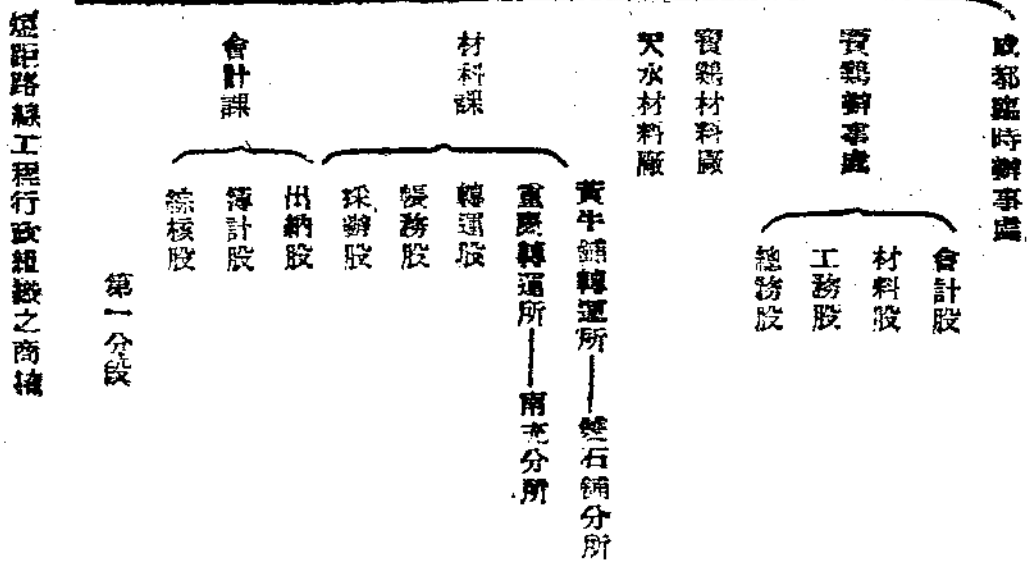 成都臨時辦事處
寶鷄辦事處
會計股
材料股
工務股
總務股
寶鷄材料廠
天水材料廠
黃牛鋪轉運所——雙石鋪分所
重慶轉運所——南充分所
材料課
轉運股
帳務股
採辦股
會計課
出納股
簿計股
綜核股
第一分段
短距路線工程行政組織之商榷